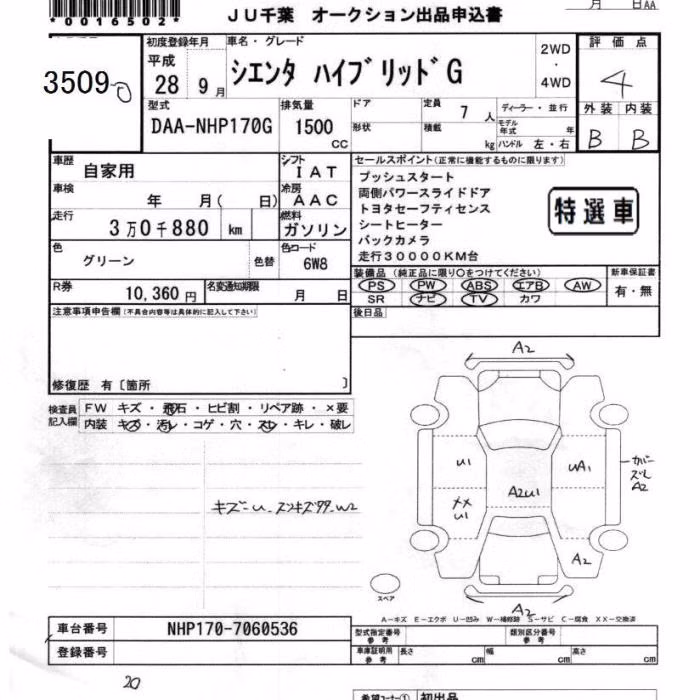 *0016502*
JU千葉 オークション出品申込書
月 日AA
3509
初度登録年月
平成
28 9月
車名・グレード
シエンタ ハイブリッドG
2WD
・
4WD
評価点
4
外装 内装
B B
型式
DAA-NHP170G
排気量
1500
CC
ドア
形状
定員
7 人
積載
kg
ディーラー・並行
モデル年式 年
ハンドル 左・右
車歴
自家用
シフト
IAT
車検
年 月( 日)
冷房
AAC
走行
3万0千880 km
燃料
ガソリン
色
グリーン
色替
色コード
6W8
R券
10,360円
名変通知期限
月 日
セールスポイント(正常に機能するものに限ります)
プッシュスタート
両側パワースライドドア
トヨタセーフティセンス
シートヒーター
バックカメラ
走行30000KM台
特選車
装備品(純正品に限り〇をつけてください)
PS PW ABS エアB AW
SR ナビ TV カワ
新車保証書
有・無
後日品
注意事項申告欄(不具合内容等は具体的に記入して下さい)
修復歴 有〔箇所 〕
検査員
記入欄
FW キズ・飛石・ヒビ割・リペア跡・×要
内装 キズ・汚レ・コゲ・穴・スレ・キレ・破レ
A2
U1
UA1
カバーズレ
A2
A2U1
XX
U1
A2
A2
スペア
A−キズ E−エクボ U−凹み W−補修跡 S−サビ C−腐食 XX−交換済
車台番号
NHP170-7060536
登録番号
型式指定番号
参考
類別区分番号
参考
車庫証明用
参考
長さ cm
幅 cm
高さ cm
20
希望コーナー①
初出品